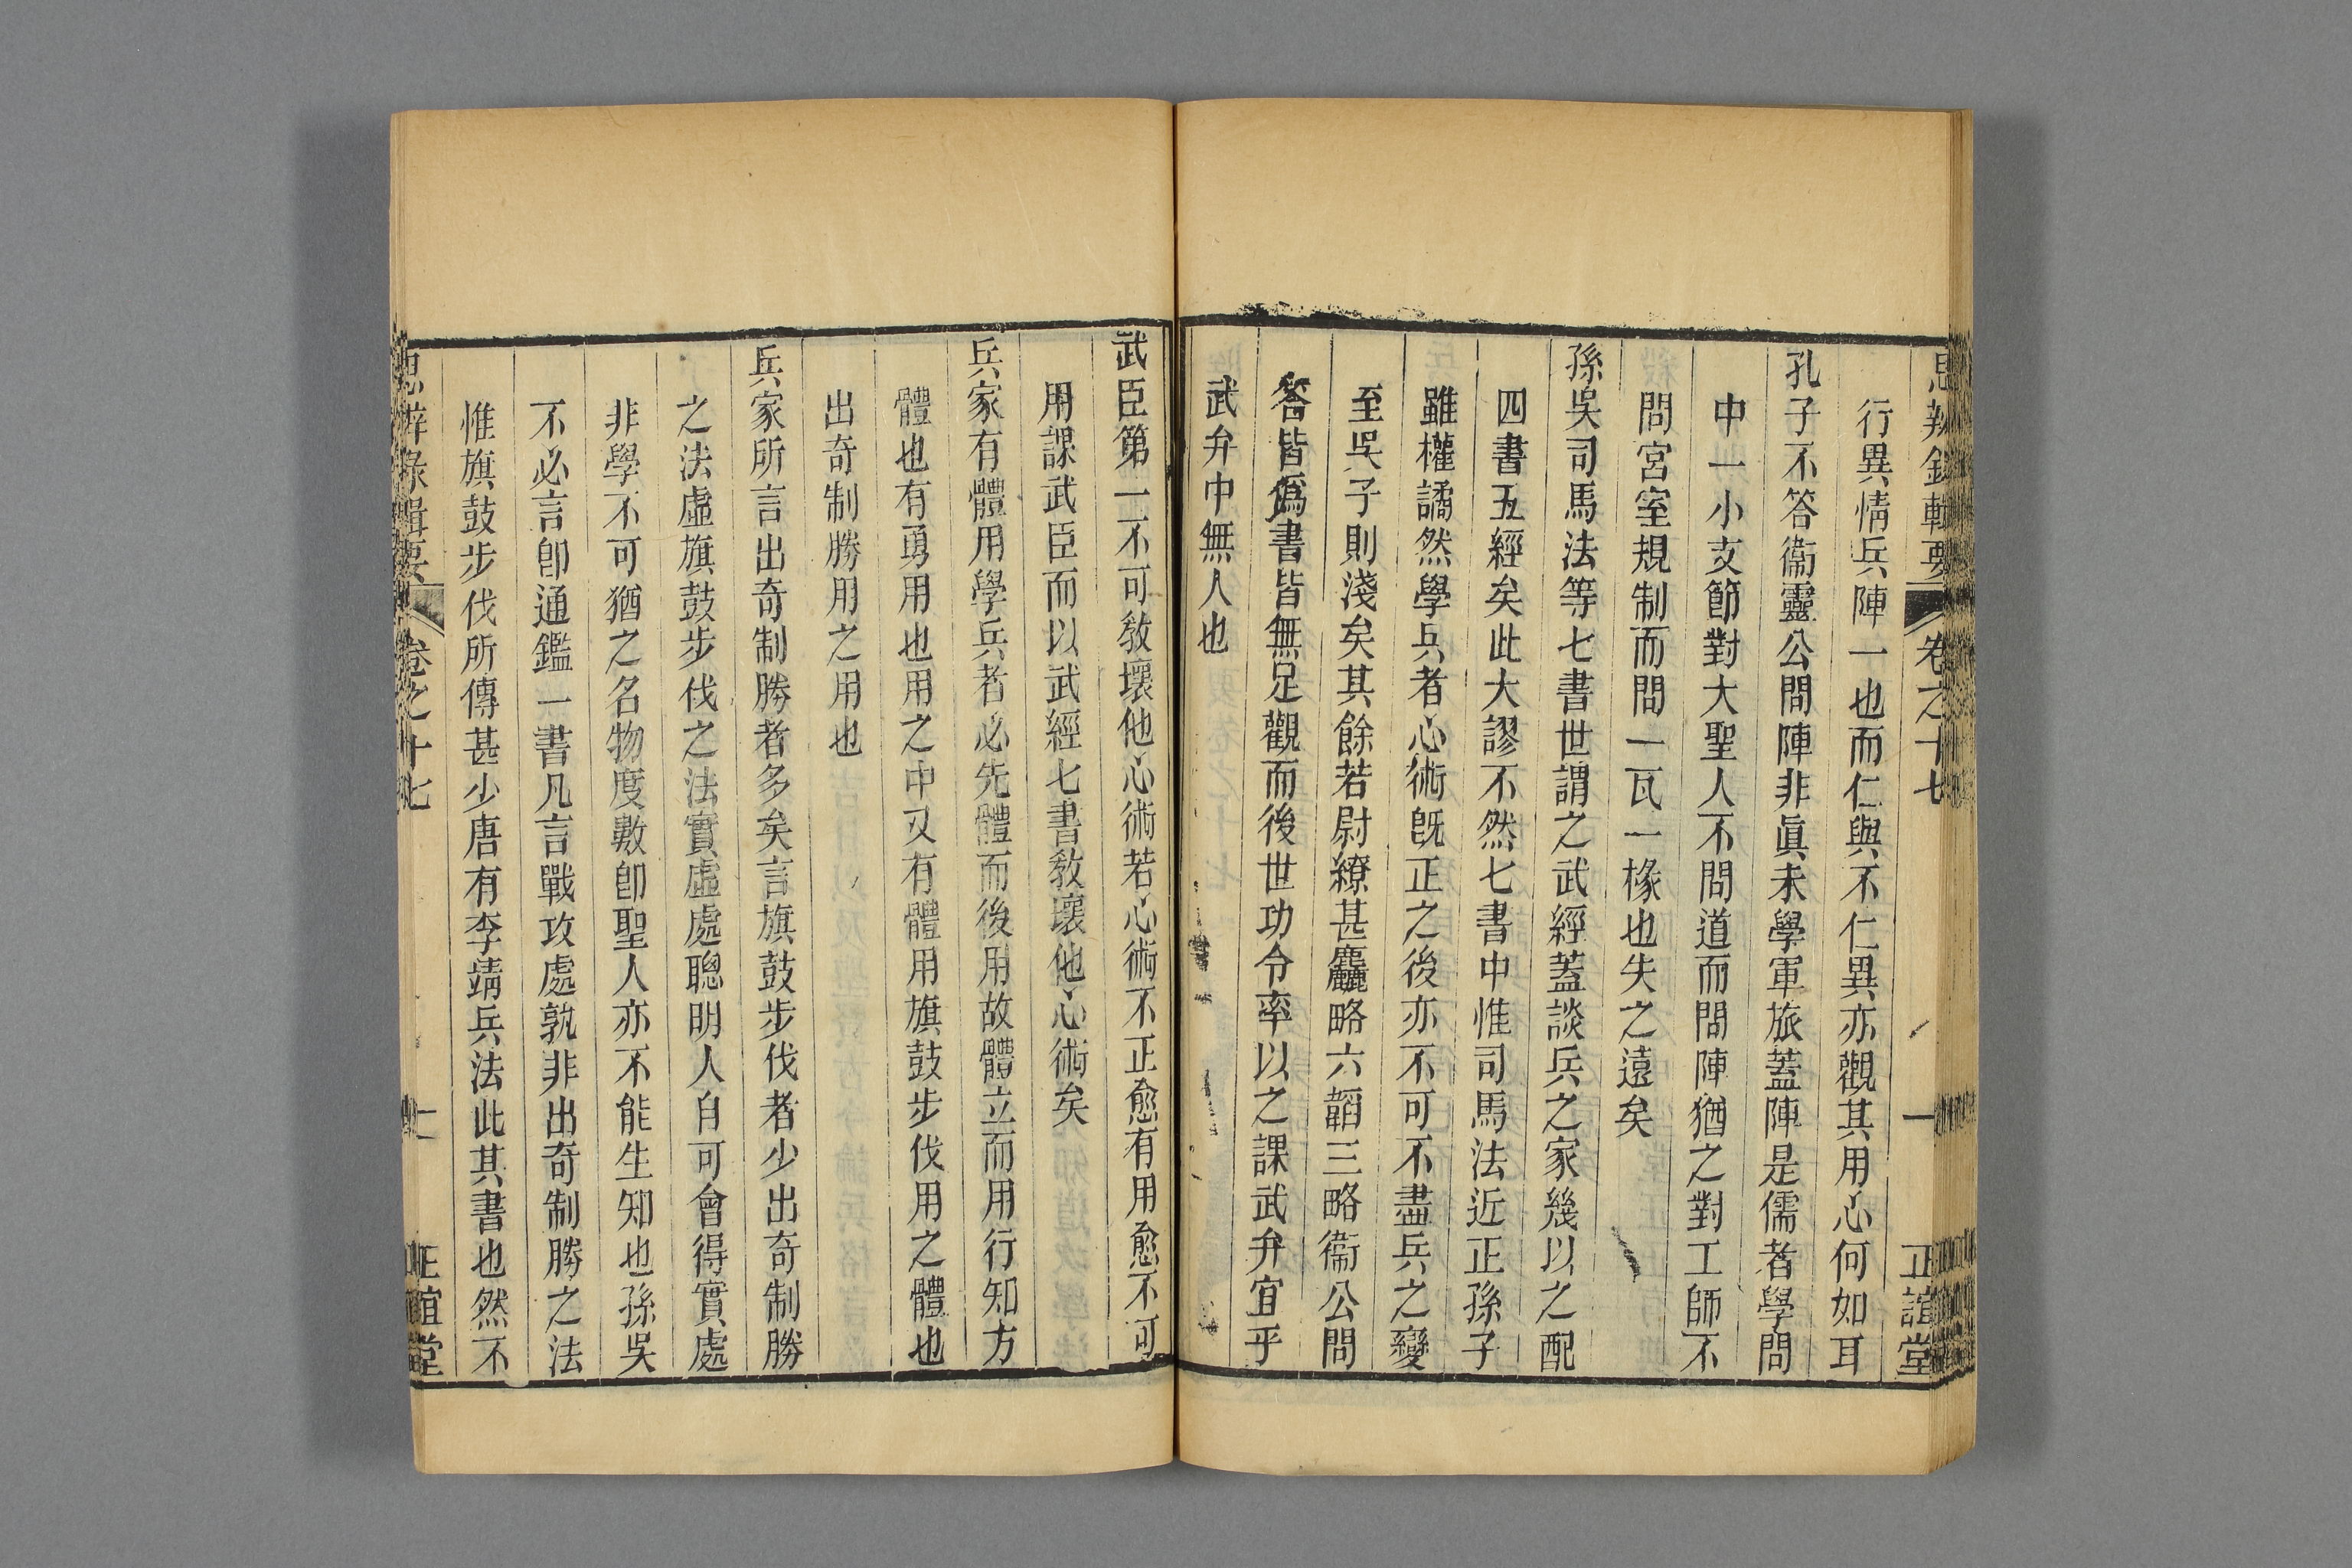 思辨錄輯要 卷之十七 一 正誼堂
行異情兵陣一也而仁與不仁異亦觀其用心何如耳
孔子不答衞靈公問陣非眞未學軍旅蓋陣是儒者學問
中一小支節對大聖人不問道而問陣猶之對工師不
問宮室規制而問一瓦一椽也失之遠矣
孫吳司馬法等七書世謂之武經蓋談兵之家幾以之配
四書五經矣此大謬不然七書中惟司馬法近正孫子
雖權譎然學兵者心術旣正之後亦不可不盡兵之變
至吳子則淺矣其餘若尉繚甚麤略六韜三略衞公問
答皆僞書皆無足觀而後世功令率以之課武弁宜乎
武弁中無人也
武臣第一不可敎壞他心術若心術不正愈有用愈不可
用課武臣而以武經七書敎壞他心術矣
兵家有體用學兵者必先體而後用故體立而用行知方
體也有勇用也用之中又有體用旗鼓步伐用之體也
出奇制勝用之用也
兵家所言出奇制勝者多矣言旗鼓步伐者少出奇制勝
之法虛旗鼓步伐之法實虛處聰明人自可會得實處
非學不可猶之名物度數卽聖人亦不能生知也孫吳
不必言卽通鑑一書凡言戰攻處孰非出奇制勝之法
惟旗鼓步伐所傳甚少唐有李靖兵法此其書也然不
思辨錄輯要 卷之十七 正誼堂